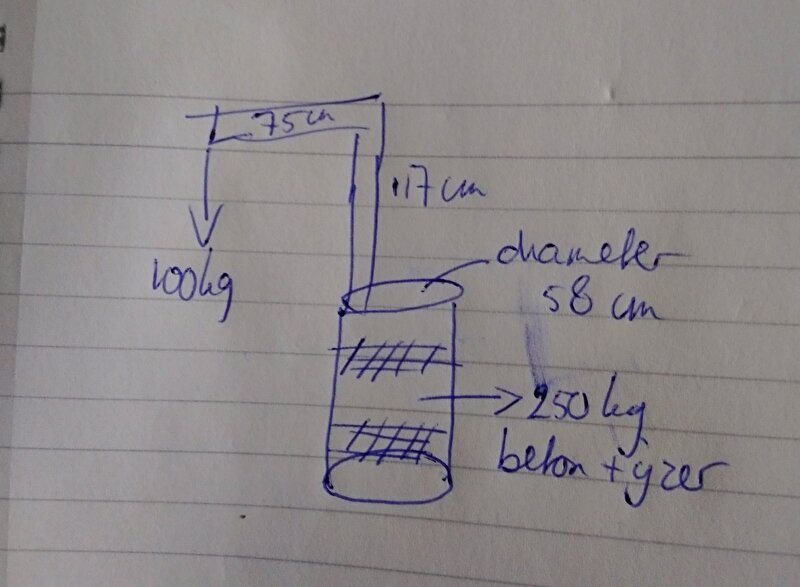 75cm
117 cm
100kg
diameter
58 cm
250 kg
beton + yzer